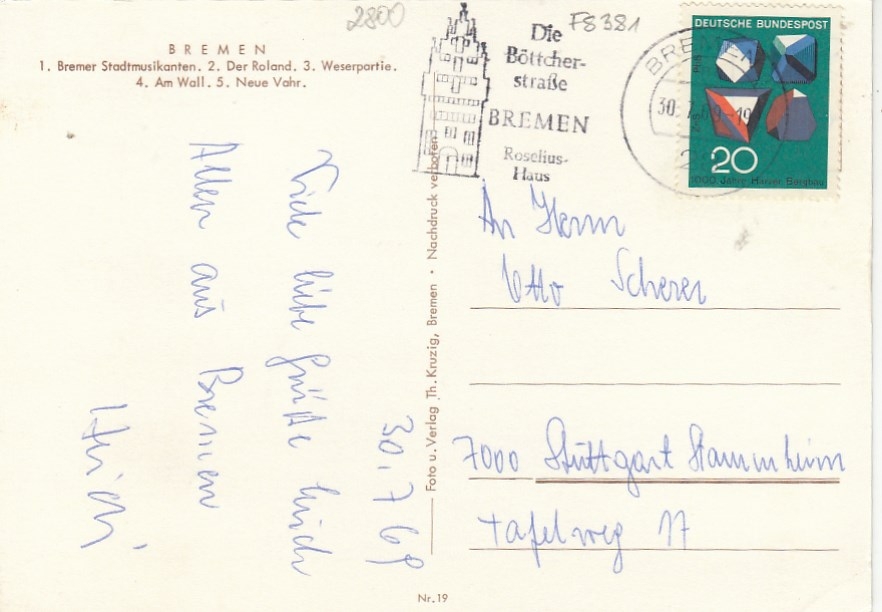 2800
F8381
BREMEN
1. Bremer Stadtmusikanten. 2. Der Roland. 3. Weserpartie.
4. Am Wall. 5. Neue Vahr.
Die
Böttcher-
straße
BREMEN
Roselius-
Haus
BREMEN
30. 7. 69-19
DEUTSCHE BUNDESPOST
20
1000 Jahre Harzer Bergbau
30. 7 69
Viele liebe Grüße Euch
Allen aus Bremen
An Herrn
Otto Scherer
7000 Stuttgart Stammheim
Tafelweg 17
Foto u. Verlag Th. Kruzig, Bremen · Nachdruck verboten
Nr. 19